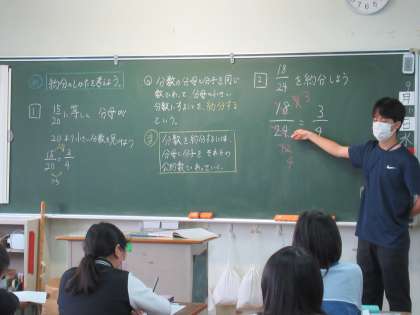 め 約分のしかたを考えよう。
1 15/20 に等しく分母が
20より小さい分数を見つけよう
15/20 = 3/4
◎ 分数の分母と分子を同じ
数でわって、分母の小さい
分数にすることを、約分する
という。
ま 分数を約分するには、
分母と分子を それらの
公約数でわっていく。
2 18/24 を約分しよう
18/24 = 3/4
9 3
12
4